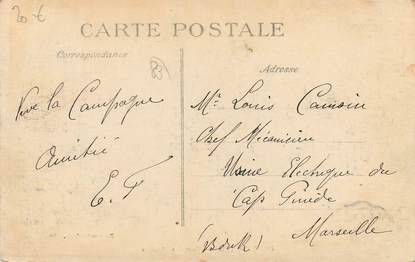 20 €
CARTE POSTALE
Correspondance
Adresse
Vive la Campagne
Amitié
E. F
Mr Louis Camoin
Chef Mécanicien
Usine Electrique du
Cap Pinède
Marseille